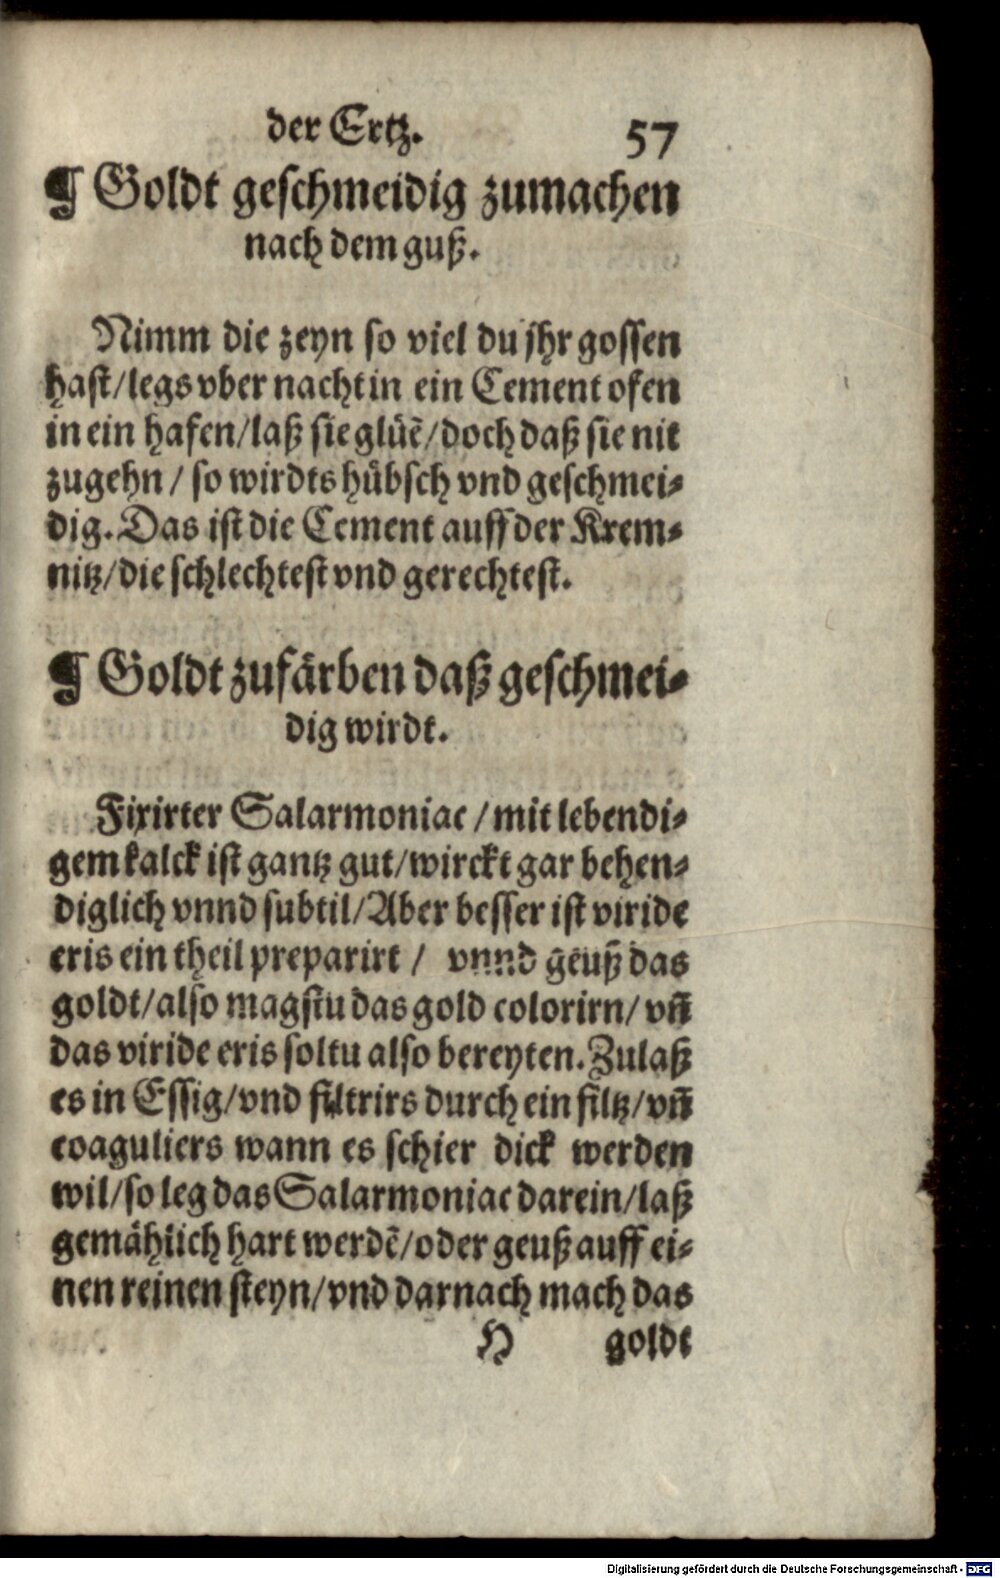 der Ertz. 57
¶ Goldt geschmeidig zumachen
nach dem guß.
Nimm die zeyn so viel du jhr gossen
hast/legs vber nacht in ein Cement ofen
in ein hafen/laß sie glüẽ/doch daß sie nit
zugehn / so wirdts hübsch vnd geschmei⸗
dig. Das ist die Cement auff der Krem⸗
nitz/die schlechtest vnd gerechtest.
¶ Goldt zufärben daß geschmei⸗
dig wirdt.
Fixirter Salarmoniac / mit lebendi⸗
gem kalck ist gantz gut/wirckt gar behen⸗
diglich vnnd subtil/Aber besser ist viride
eris ein theil preparirt / vnnd geuß das
goldt/also magstu das gold colorirn/ vñ
das viride eris soltu also bereyten. Zulaß
es in Essig/vnd filtrirs durch ein filtz/vñ
coaguliers wann es schier dick werden
wil/so leg das Salarmoniac darein/laß
gemählich hart werdẽ/oder geuß auff ei⸗
nen reinen steyn/vnd darnach mach das
H goldt
Digitalisierung gefördert durch die Deutsche Forschungsgemeinschaft - DFG